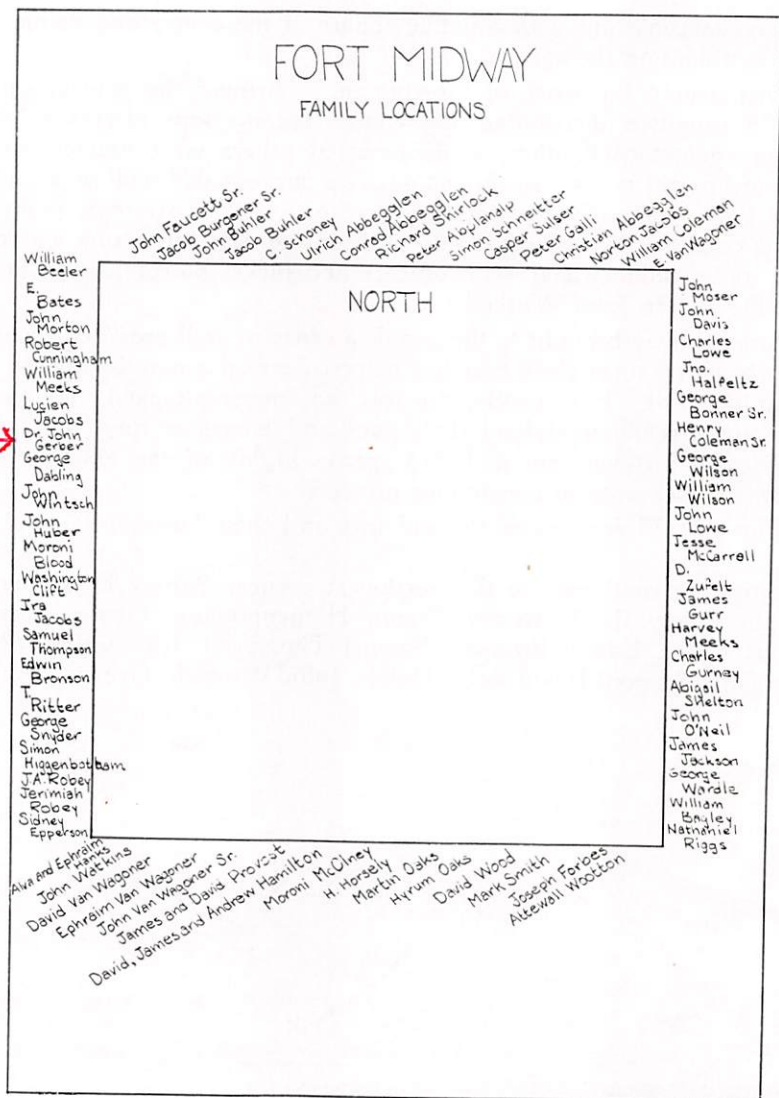 FORT MIDWAY
FAMILY LOCATIONS
John Faucett Sr.
Jacob Burgener Sr.
John Buhler
Jacob Buhler
C. Schoney
Ulrich Abbegglen
Conrad Abbegglen
Richard Shirlock
Peter Abplanalp
Simon Schneitter
Casper Sulser
Peter Galli
Christian Abbegglen
Norton Jacobs
William Coleman
E. VanWagoner
NORTH
William
Beeler
E.
Bates
John
Morton
Robert
Cunningham
William
Meeks
Lucien
Jacobs
Dr. John
Gerber
George
Dabling
John
Wintsch
John
Huber
Moroni
Blood
Washington
Clift
Ira
Jacobs
Samuel
Thompson
Edwin
Bronson
T.
Ritter
George
Snyder
Simon
Higgenbotham
J.A. Robey
Jerimiah
Robey
Sidney
Epperson
John
Moser
John
Davis
Charles
Lowe
Jno.
Halfeltz
George
Bonner Sr.
Henry
Coleman Sr.
George
Wilson
William
Wilson
John
Lowe
Jesse
McCarrell
D.
Zufelt
James
Gurr
Harvey
Meeks
Charles
Gurney
Abigail
Shelton
John
O'Neil
James
Jackson
George
Wardle
William
Bagley
Nathaniel
Riggs
Alva and Ephraim
Hanks
John Watkins
David Van Wagoner
Ephraim Van Wagoner
John Van Wagoner Sr.
James and David Provost
David, James and Andrew Hamilton
Moroni McOlney
H. Horsely
Martin Oaks
Hyrum Oaks
David Wood
Mark Smith
Joseph Forbes
Attewall Wootton